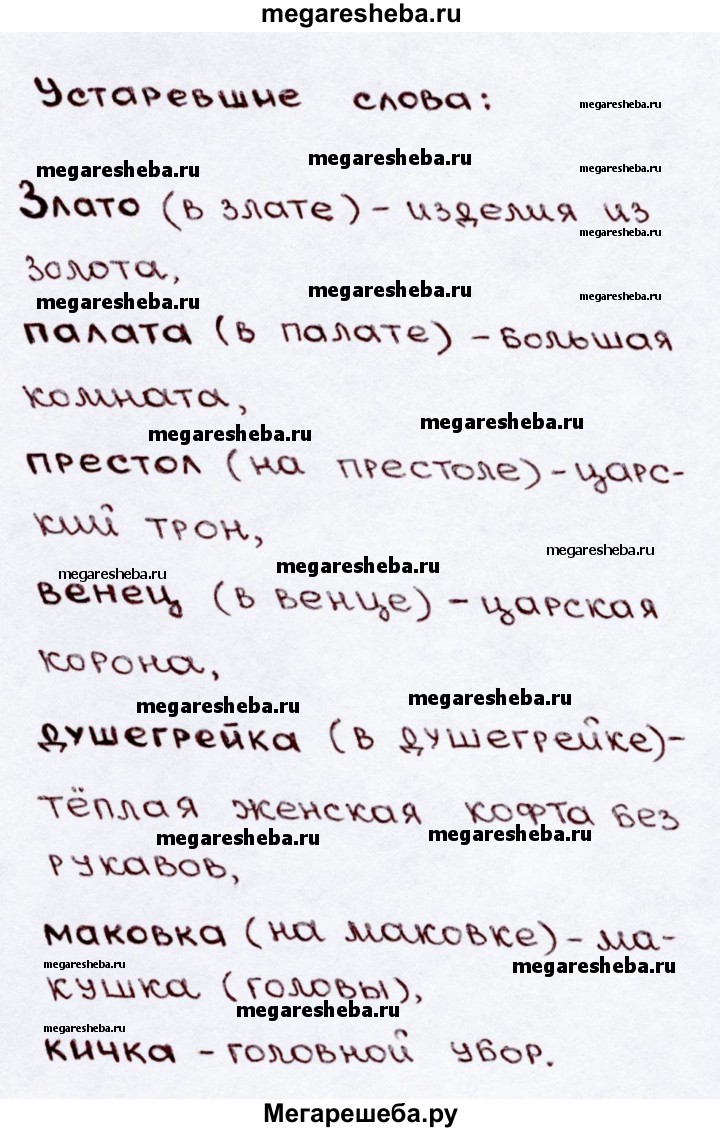 megaresheba.ru
Устаревшие слова:
megaresheba.ru
megaresheba.ru
megaresheba.ru
megaresheba.ru
Злато (в злате) - изделия из
megaresheba.ru
золота,
megaresheba.ru
megaresheba.ru
megaresheba.ru
палата (в палате) - большая
комната,
megaresheba.ru
megaresheba.ru
престол (на престоле) - царс-
кий трон,
megaresheba.ru
megaresheba.ru
megaresheba.ru
венец (в венце) - царская
корона,
megaresheba.ru
megaresheba.ru
душегрейка (в душегрейке) -
тёплая женская кофта без
megaresheba.ru
megaresheba.ru
рукавов,
маковка (на маковке) - ма-
megaresheba.ru
megaresheba.ru
кушка (головы),
megaresheba.ru
megaresheba.ru
кичка - головной убор.
Мегарешеба.ру